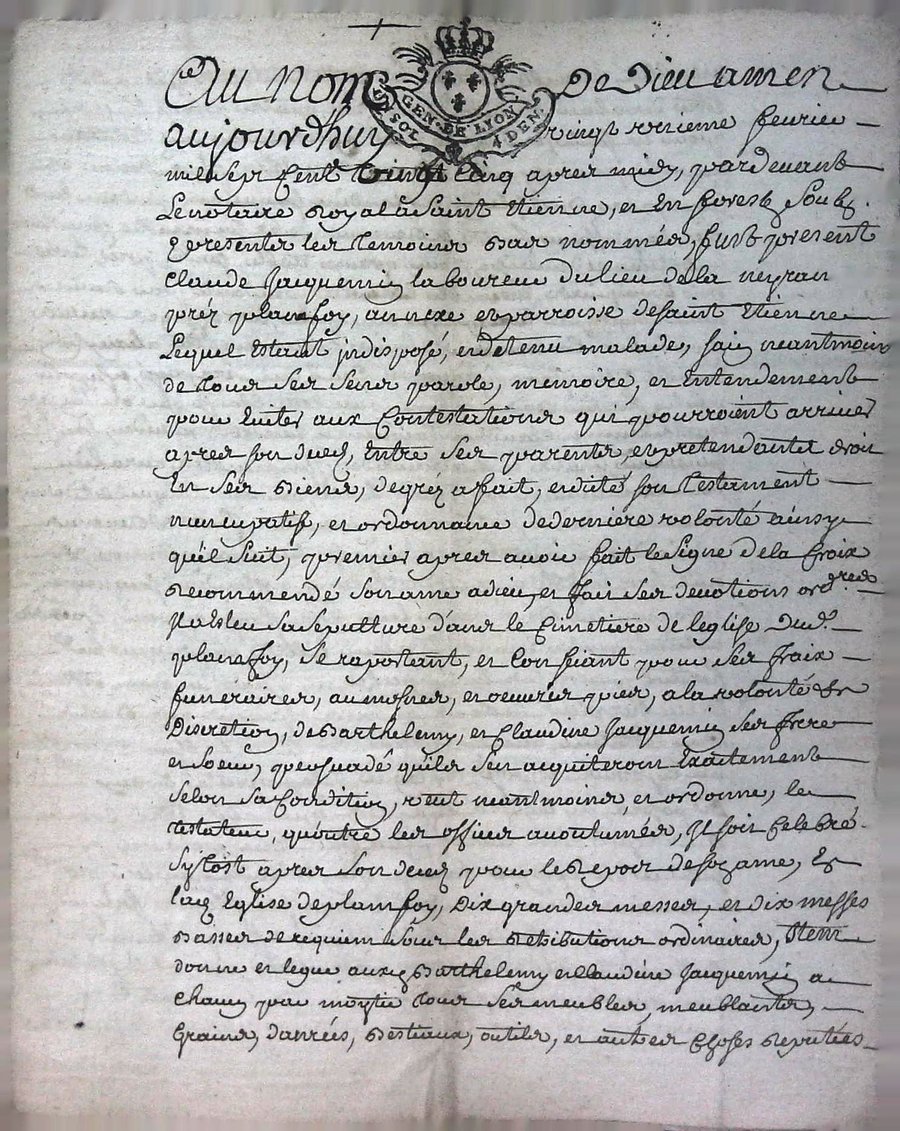 Au nom De Dieu amen
GEN. DE LYON
SOL 4 DEN.
aujourdhuy vingt unieme feurier
mil sept Cent vingt Cinq apres midy, pardeuant
Le notaire Royal a Saint Etienne, et En forest Soub.
presenter les temoins Bas nommés, fust present
Claude Jacquemin laboureur du lieu de la neyran
préz planfoy, annexe et parroisse de Saint Etienne
Lequel Estant indisposé, et detenu malade, sain neantmoins
de tous ses sens parole, memoire, et Entendement
pour Euiter aux Contestations qui pourroient arriuer
apres son deceds, Entre ses parents, et pretendants droit
En ses Biens, de gréz a fait, et dité son testament
nuncupatif, et ordonnance de derniere volonté ainsy
qu'il suit, premier apres auoir fait le Signe de la Croix
Recommendé son ame a dieu, et fait ses deuotions ordres
Il a Esleu sa sepulture dans le Cimetiere de leglise dud.
planfoy, se raportant, et Confiant pour ses fraix
funeraires, aumosnes, et oeuures pies, a la volonté Et
Discretion, de Barthelemy, et Claudine Jacquemin ses frere
et soeur, persuadé qu'ils s'en acquiteront Exaitement
selon sa Condition, veut neantmoins et ordonne, le
testateur, qu'outre les offices acoutumés, Il soit Celebré
sytost apres son deceds pour le Repos de son ame, En
lad Eglise de planfoy, Dix grandes messes, et dix messes
Basses de requiem sous les Retributions ordinaires, Item
donne et legue auxd Barthelemy et Claudine Jacquemin a
chacun par moytié tous ses meubles, meublants,
Grains, danrées, Bestiaux, outils, et autres Choses Reputées